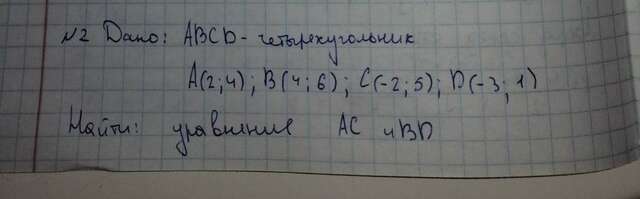 №2 Дано: ABCD - четырехугольник
A(2;4); B(4;6); C(-2;5); D(-3;1)
Найти: уравнение AC и BD